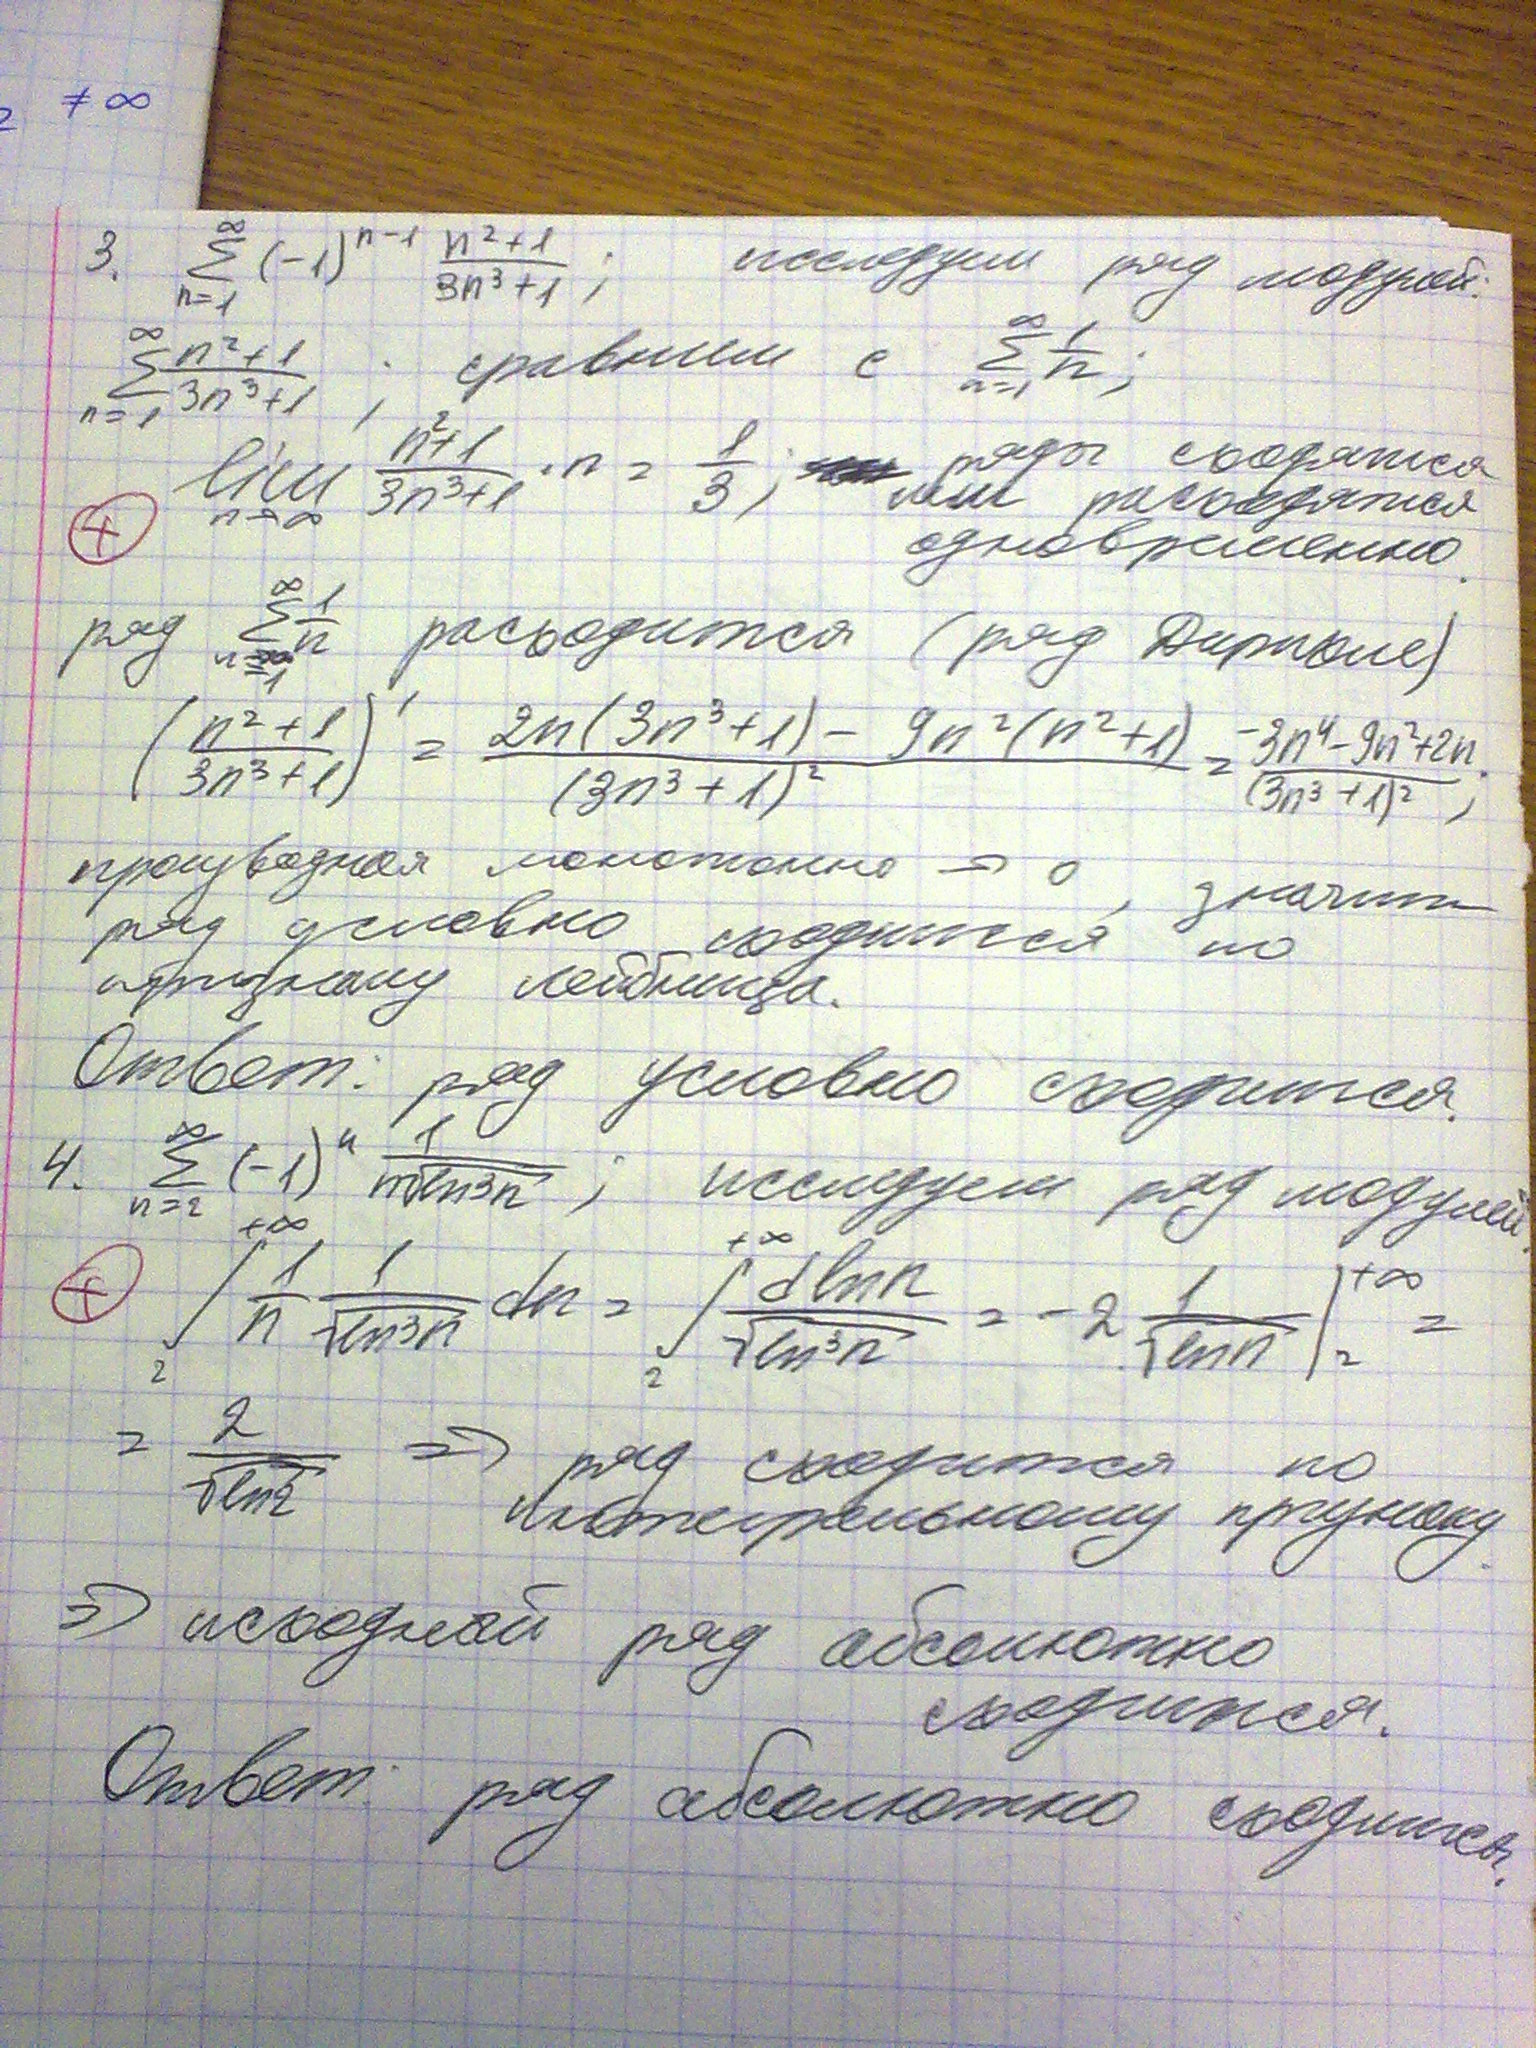 2 ≠ ∞
3. ∑_{n=1}^{∞} (-1)^{n-1} (n²+1)/(3n³+1) ; исследуем ряд модулей:
∑_{n=1}^{∞} (n²+1)/(3n³+1) ; сравним с ∑_{n=1}^{∞} 1/n ;
lim_{n→∞} (n²+1)/(3n³+1) · n = 1/3 ; ряды сходятся
или расходятся
одновременно.
+
ряд ∑_{n=1}^{∞} 1/n расходится (ряд Дирихле)
((n²+1)/(3n³+1))' = (2n(3n³+1) - 9n²(n²+1))/(3n³+1)² = (-3n⁴-9n²+2n)/(3n³+1)² ;
производная монотонно → 0, значит
ряд условно сходится по
признаку Лейбница.
Ответ: ряд условно сходится.
4. ∑_{n=2}^{∞} (-1)^n 1/(n√(ln³n)) ; исследуем ряд модулей:
+
∫_2^{+∞} 1/n 1/√(ln³n) dn = ∫_2^{+∞} dlnn/√(ln³n) = -2 1/√(lnn) |_2^{+∞} =
= 2/√(ln2) ⇒ ряд сходится по
интегральному признаку.
⇒ исходный ряд абсолютно
сходится.
Ответ: ряд абсолютно сходится.